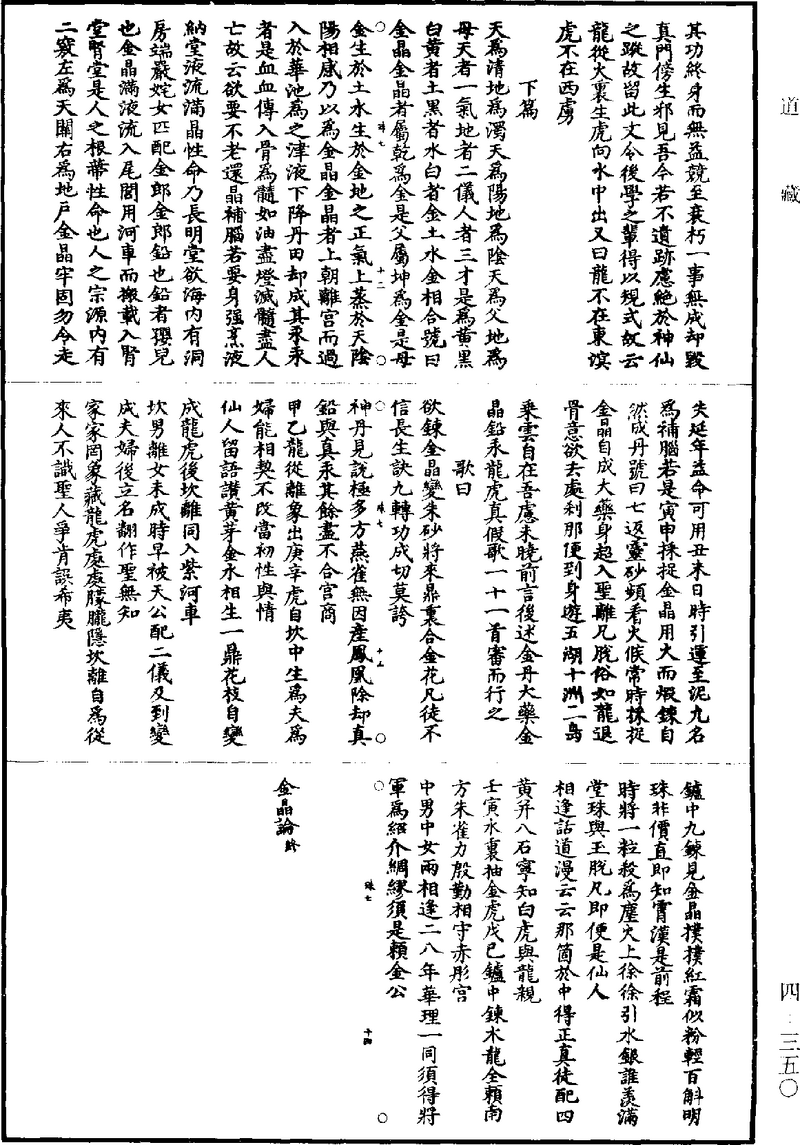 道藏
四—三五〇
其功終身而無益競至衰朽一事無成却毀
真門傍生邪見吾今若不遺跡慮絕於神仙
之蹤故留此文令後學之輩得以規式故云
龍從火裏生虎向水中出又曰龍不在東溟
虎不在西虜
下篇
天為清地為濁天為陽地為陰天為父地為
母天者一氣地者二儀人者三才是為黃黑
白黃者土黑者水白者金土水金相合號曰
金晶金晶者屬乾為金是父屬坤為金是母
珠七 十二
金生於土水生於金地之正氣上蒸於天陰
陽相感乃以為金晶金晶者上朝離宮而過
入於華池為之津液下降丹田却成其汞汞
者是血血傳入骨為髓如油盡燈滅髓盡人
亡故云欲要不老還晶補腦若要身強烹液
納堂液流滿晶性命乃長明堂欲海內有洞
房端嚴姹女匹配金郎金郎鉛也鉛者嬰兒
也金晶滿液流入尾閭用河車而搬載入腎
堂腎堂是人之根蒂性命也人之宗源內有
二竅左為天關右為地戶金晶牢固勿令走
失延年益命可用丑未日時引運至泥九名
為補腦若是寅申採捉金晶用火而煅鍊自
然成丹號曰七返靈砂頻看火候常時採捉
金晶自成大藥身超入聖離凡脫俗如龍退
骨意欲去處剎那便到身遊五湖十洲二島
乘雲自在吾慮未曉前言後述金丹大藥金
晶鉛汞龍虎真假歌一十一首審而行之
歌曰
欲鍊金晶變朱砂將來鼎裏合金花凡徒不
信長生訣九轉功成切莫誇
珠七 十三
神丹見說極多方燕雀無因產鳳凰除却真
鉛與真汞其餘盡不合宮商
甲乙龍從離象出庚辛虎自坎中生為夫為
婦能相契不改當初性與情
仙人留語讚黃芽金水相生一鼎花枝自變
成龍虎後坎離同入紫河車
坎男離女未成時早被天公配二儀及到變
成夫婦後立名翻作聖無知
家家罔象藏龍虎處處朦朧隱坎離自為從
來人不識聖人爭肯誤希夷
鑪中九鍊見金晶撲撲紅霜似粉輕百斛明
珠非價直即知霄漢是前程
時將一粒殺為塵火上徐徐引水銀誰羨滿
堂珠與玉脫凡即便是仙人
相逢話道漫云云那箇於中得正真徒配四
黃并八石寧知白虎與龍親
壬寅水裏抽金虎戊己鑪中鍊木龍全賴南
方朱雀力殷勤相守赤彤宮
中男中女兩相逢二八年華理一同須得將
軍為紹介綢繆須是賴金公
珠七 十四
金晶論終